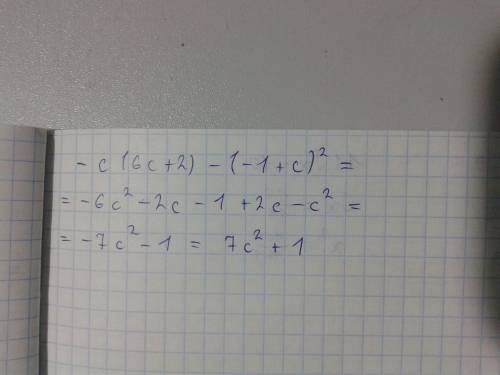 - c (6c+2) - (-1+c)² =
= -6c² - 2c - 1 + 2c - c² =
= -7c² - 1 = 7c² + 1